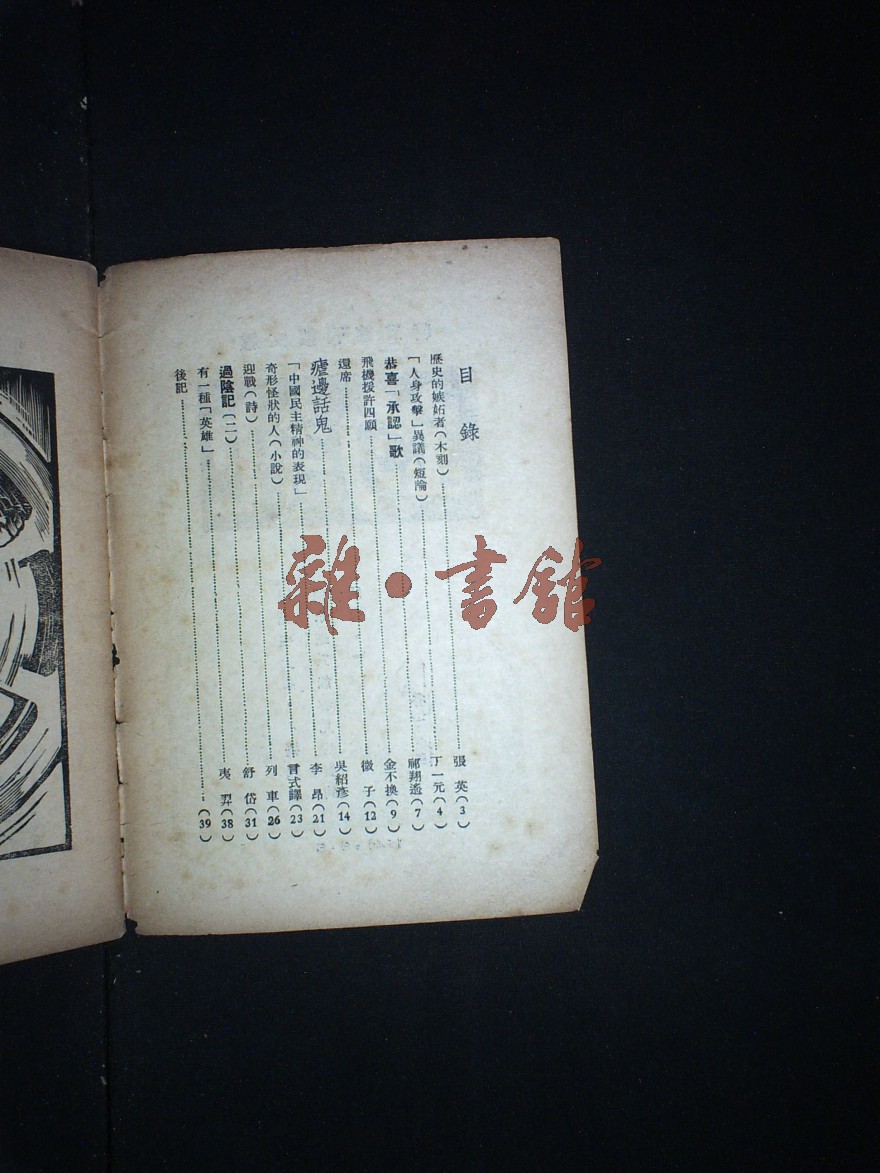 目錄
歷史的嫉妬者(木刻)……張 英(3)
「人身攻擊」異議(短論)……丁一元(4)
恭喜「承認」歌……翔(7)
飛機援許四願……金不換(9)
還席……微 子(12)
瘧邊話鬼……吳紹彥(14)
「中國民主精神的表現」……李 昂(21)
奇形怪狀的人(小說)……言式譯(23)
迎戰(詩)……列 車(26)
過陰記(二)……舒 岱(31)
有一種「英雄」……夷 羿(38)
後記……(39)
雜·書館